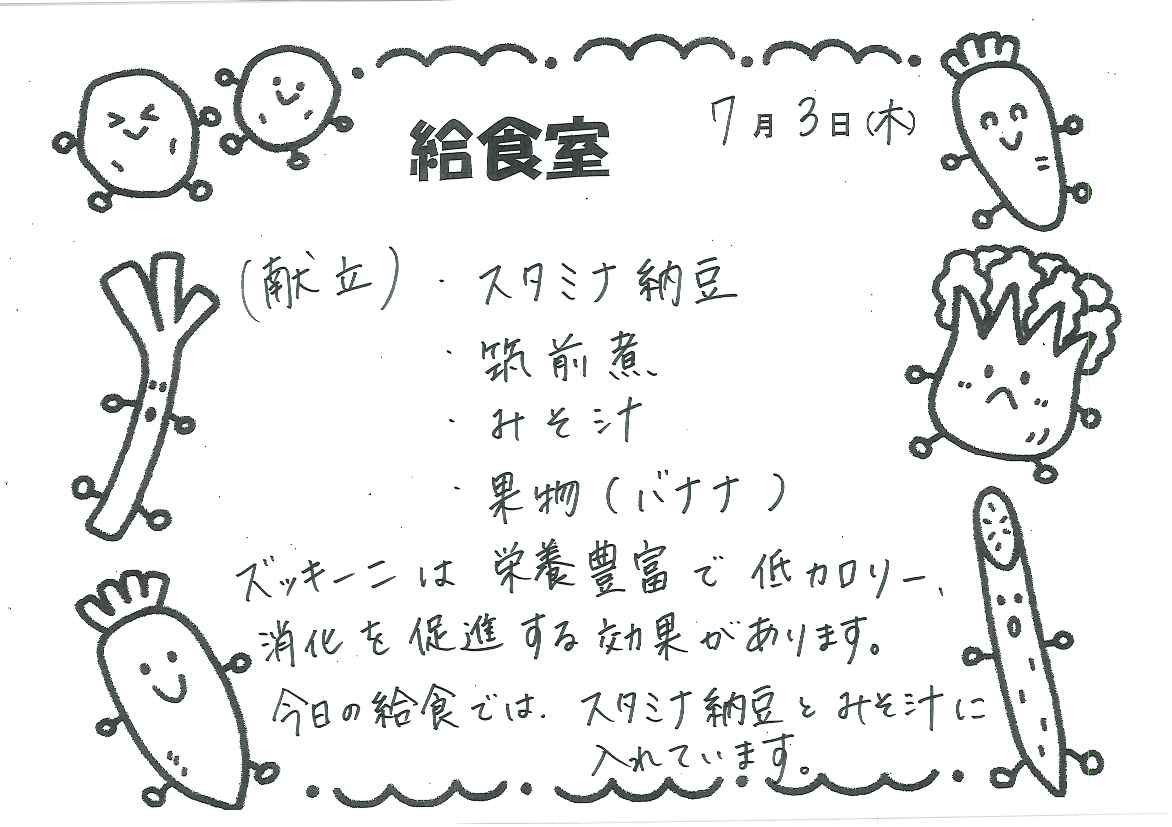 給食室
7月3日(木)
(献立)・スタミナ納豆
・筑前煮
・みそ汁
・果物(バナナ)
ズッキーニは栄養豊富で低カロリー、
消化を促進する効果があります。
今日の給食では、スタミナ納豆とみそ汁に
入れています。